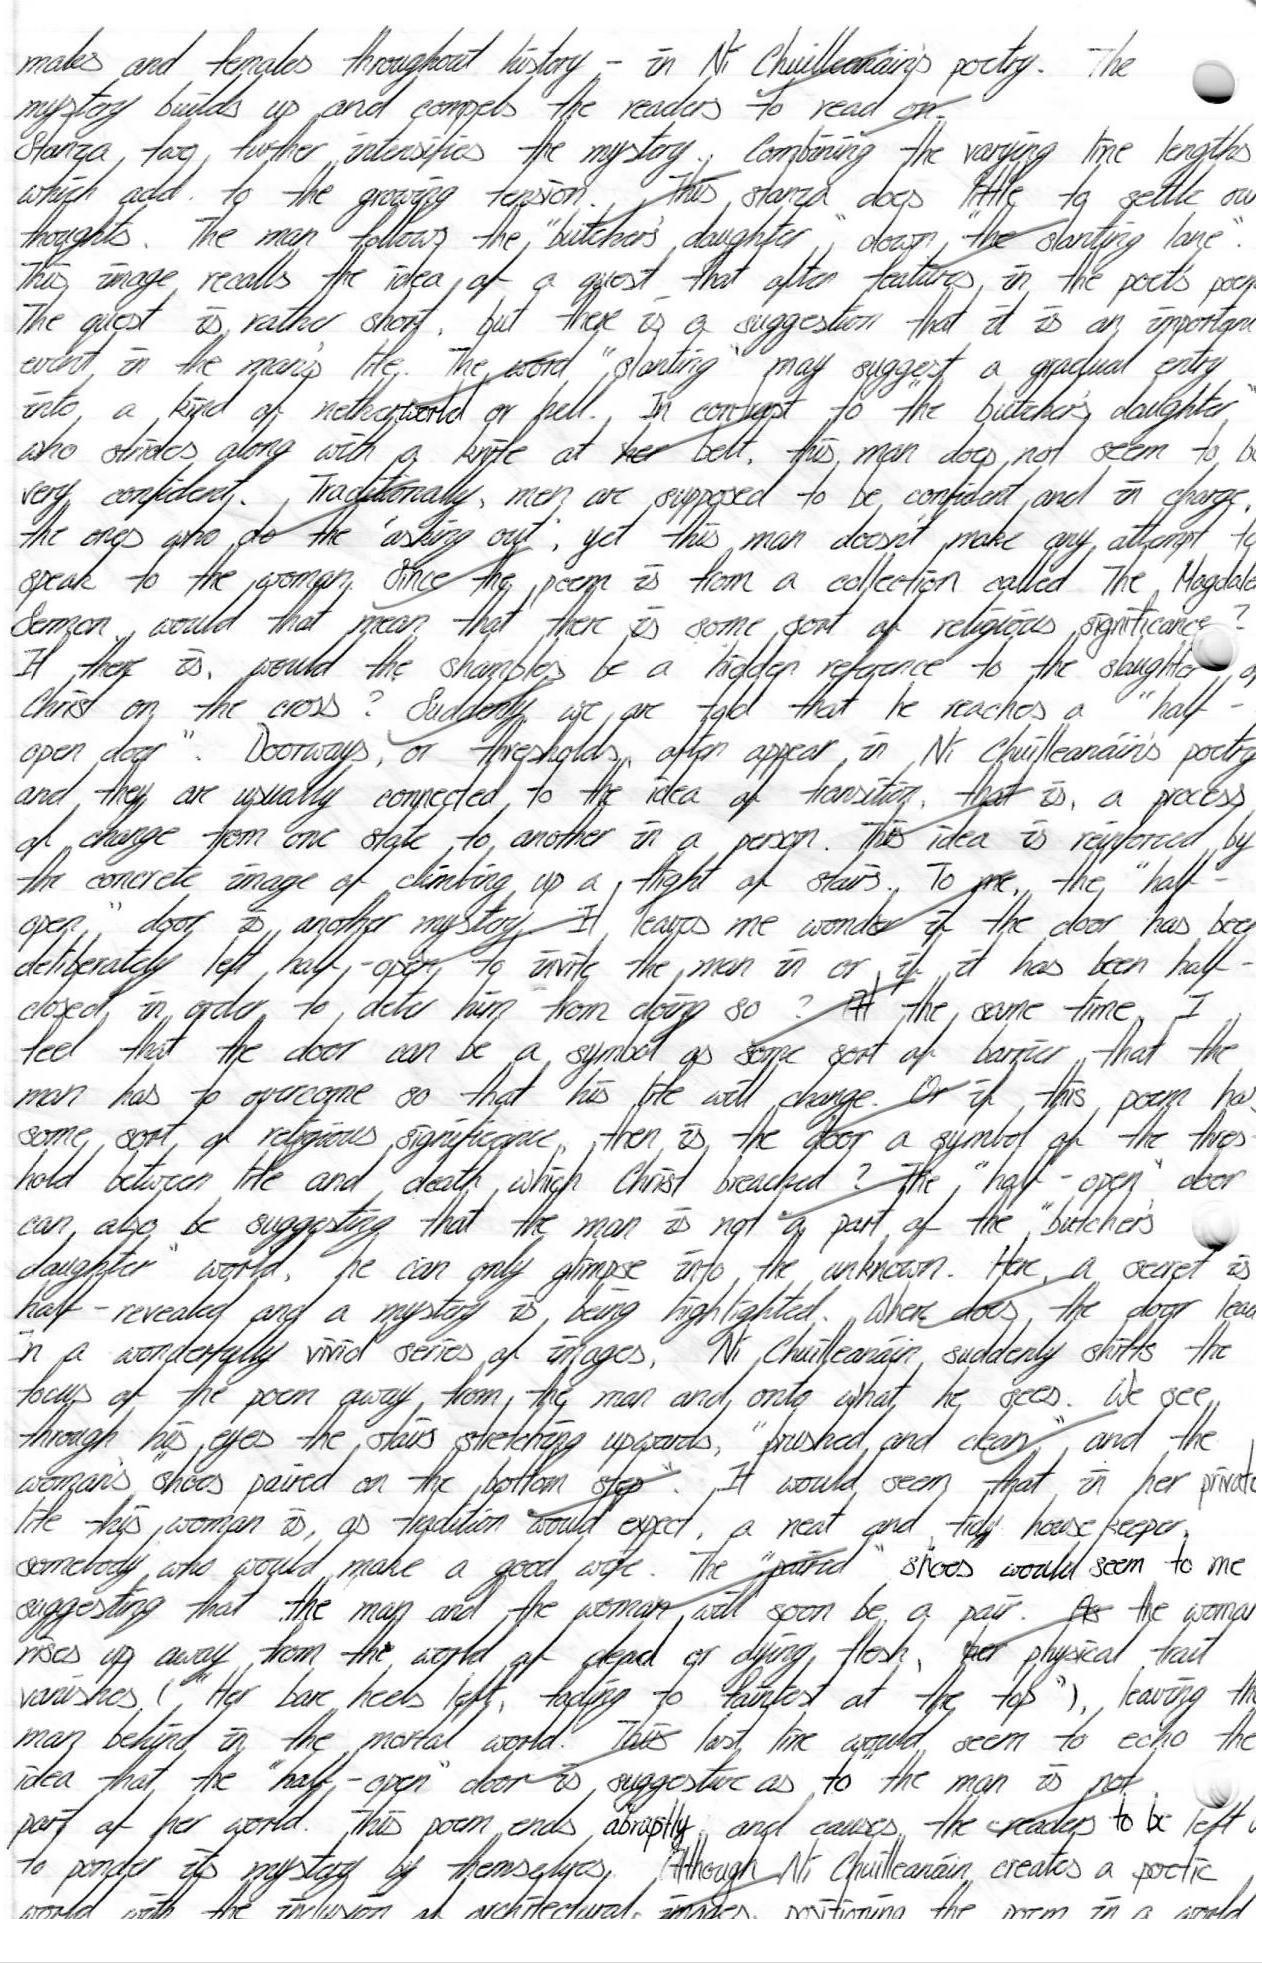 males and females throughout history - in Ní Chuilleanáin's poetry. The
mystery builds up and compels the readers to read on.
Stanza two further intensifies the mystery. Combining the varying line lengths
which add to the growing tension. This stanza does little to settle our
thoughts. The man follows the "butcher's daughter" down "the slanting lane".
This image recalls the idea of a quest that often features in the poet's poem
The quest is rather short, but there is a suggestion that it is an important
event in the man's life. The word "slanting" may suggest a gradual entry
into a kind of netherworld or hell. In contrast to the "butcher's daughter"
who strides along with a knife at her belt, this man does not seem to be
very confident. Traditionally, men are supposed to be confident and in charge,
the ones who do the 'asking out', yet this man doesn't make any attempt to
speak to the woman. Since the poem is from a collection called The Magdale
Sermon, would that mean that there is some sort of religious significance?
If there is, would the shambles be a hidden reference to the slaughter of
Christ on the cross? Suddenly we are told that he reaches a "half-
open door". Doorways, or thresholds, often appear in Ní Chuilleanáin's poetry
and they are usually connected to the idea of transition, that is, a process
of change from one state to another in a person. This idea is reinforced by
the concrete image of climbing up a flight of stairs. To me, the "half-
open" door is another mystery. It leaves me wonder if the door has been
deliberately left half-open to invite the man in or if it has been half-
closed in order to deter him from doing so? At the same time, I
feel that the door can be a symbol as some sort of barrier that the
man has to overcome so that his life will change. Or if this poem has
some sort of religious significance, then is the door a symbol of the thres-
hold between life and death which Christ breached? The "half-open" door
can also be suggesting that the man is not a part of the "butcher's
daughter" world, he can only glimpse into the unknown. Here, a secret is
half-revealed and a mystery is being highlighted. Where does the door lead
In a wonderfully vivid series of images, Ní Chuilleanáin suddenly shifts the
focus of the poem away from the man and onto what he sees. We see
through his eyes the stairs stretching upwards, "brushed and clean" and the
woman's "shoes paired on the bottom step". It would seem that in her private
life this woman is, as tradition would expect, a neat and tidy housekeeper,
somebody who would make a good wife. The "paired" shoes would seem to me
suggesting that the man and the woman will soon be a pair. As the woman
rises up away from the world of dead or dying flesh, her physical trait
vanishes ("Her bare heels left, fading to faintest at the top"), leaving the
man behind in the mortal world. This last line would seem to echo the
idea that the "half-open" door is suggestive as to the man is not
part of her world. This poem ends abruptly and causes the readers to be left
to ponder its mystery by themselves. Although Ní Chuilleanáin creates a poetic
world with the inclusion of architectural images, positioning the poem in a world